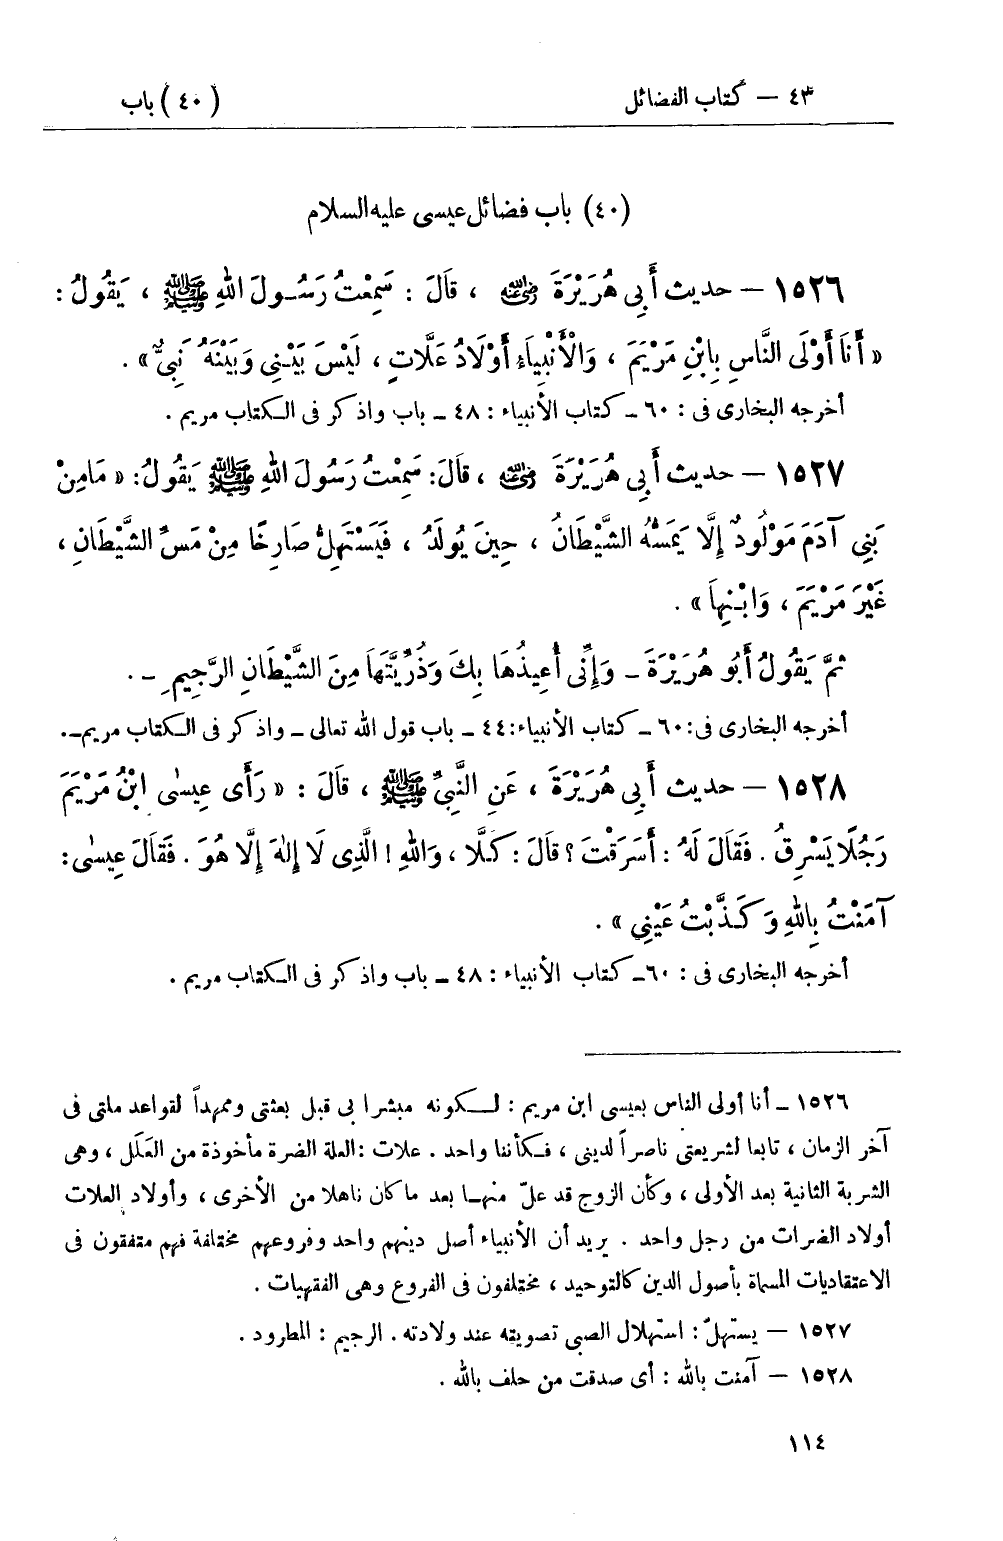 ٤٣ — كتاب الفضائل (٤٠) باب
(٤٠) باب فضائل عيسى عليه السلام
١٥٢٦ — حديث أَبِي هُرَيْرَةَ رضي الله عنه ، قَالَ : سَمِعْتُ رَسُولَ اللهِ ﷺ ، يَقُولُ :
« أَنَا أَوْلَى النَّاسِ بِابْنِ مَرْيَمَ ، وَالْأَنْبِيَاءُ أَوْلَادُ عَلَّاتٍ ، لَيْسَ بَيْنِي وَبَيْنَهُ نَبِيٌّ » .
أخرجه البخارى فى : ٦٠ ـ كتاب الأنبياء : ٤٨ ـ باب واذكر فى الكتاب مريم .
١٥٢٧ — حديث أَبِي هُرَيْرَةَ رضي الله عنه ، قَالَ : سَمِعْتُ رَسُولَ اللهِ ﷺ يَقُولُ : « مَا مِنْ
بَنِي آدَمَ مَوْلُودٌ إِلَّا يَمَسُّهُ الشَّيْطَانُ ، حِينَ يُولَدُ ، فَيَسْتَهِلُّ صَارِخًا مِنْ مَسِّ الشَّيْطَانِ ،
غَيْرَ مَرْيَمَ ، وَابْنِهَا » .
ثُمَّ يَقُولُ أَبُو هُرَيْرَةَ ـ وَإِنِّى أُعِيذُهَا بِكَ وَذُرِّيَّتَهَا مِنَ الشَّيْطَانِ الرَّجِيمِ ـ .
أخرجه البخارى فى : ٦٠ ـ كتاب الأنبياء : ٤٤ ـ باب قول الله تعالى ـ واذكر فى الكتاب مريم ـ .
١٥٢٨ — حديث أَبِي هُرَيْرَةَ ، عَنِ النَّبِيِّ ﷺ ، قَالَ : « رَأَى عِيسَى ابْنُ مَرْيَمَ
رَجُلًا يَسْرِقُ . فَقَالَ لَهُ : أَسَرَقْتَ ؟ قَالَ : كَلَّا ، وَاللهِ ! الَّذِى لَا إِلَهَ إِلَّا هُوَ . فَقَالَ عِيسَى :
آمَنْتُ بِاللهِ وَكَذَّبْتُ عَيْنِي » .
أخرجه البخارى فى : ٦٠ ـ كتاب الأنبياء : ٤٨ ـ باب واذكر فى الكتاب مريم .
١٥٢٦ ـ أنا أولى الناس بعيسى ابن مريم : لكونه مبشرا بى قبل بعثتى وممهداً لقواعد ملتى فى
آخر الزمان ، تابعا لشريعتى ناصراً لدينى ، فكأننا واحد . علات : العلة الضرة مأخوذة من العَلَل ، وهى
الشربة الثانية بعد الأولى ، وكأن الزوج قد علّ منها بعد ما كان ناهلا من الأخرى ، وأولاد العلات
أولاد الضرات من رجل واحد . يريد أن الأنبياء أصل دينهم واحد وفروعهم مختلفة فهم متفقون فى
الاعتقاديات المسماة بأصول الدين كالتوحيد ، مختلفون فى الفروع وهى الفقهيات .
١٥٢٧ — يستهلّ : استهلال الصبى تصويته عند ولادته . الرجيم : المطرود .
١٥٢٨ — آمنت بالله : أى صدقت من حلف بالله .
١١٤